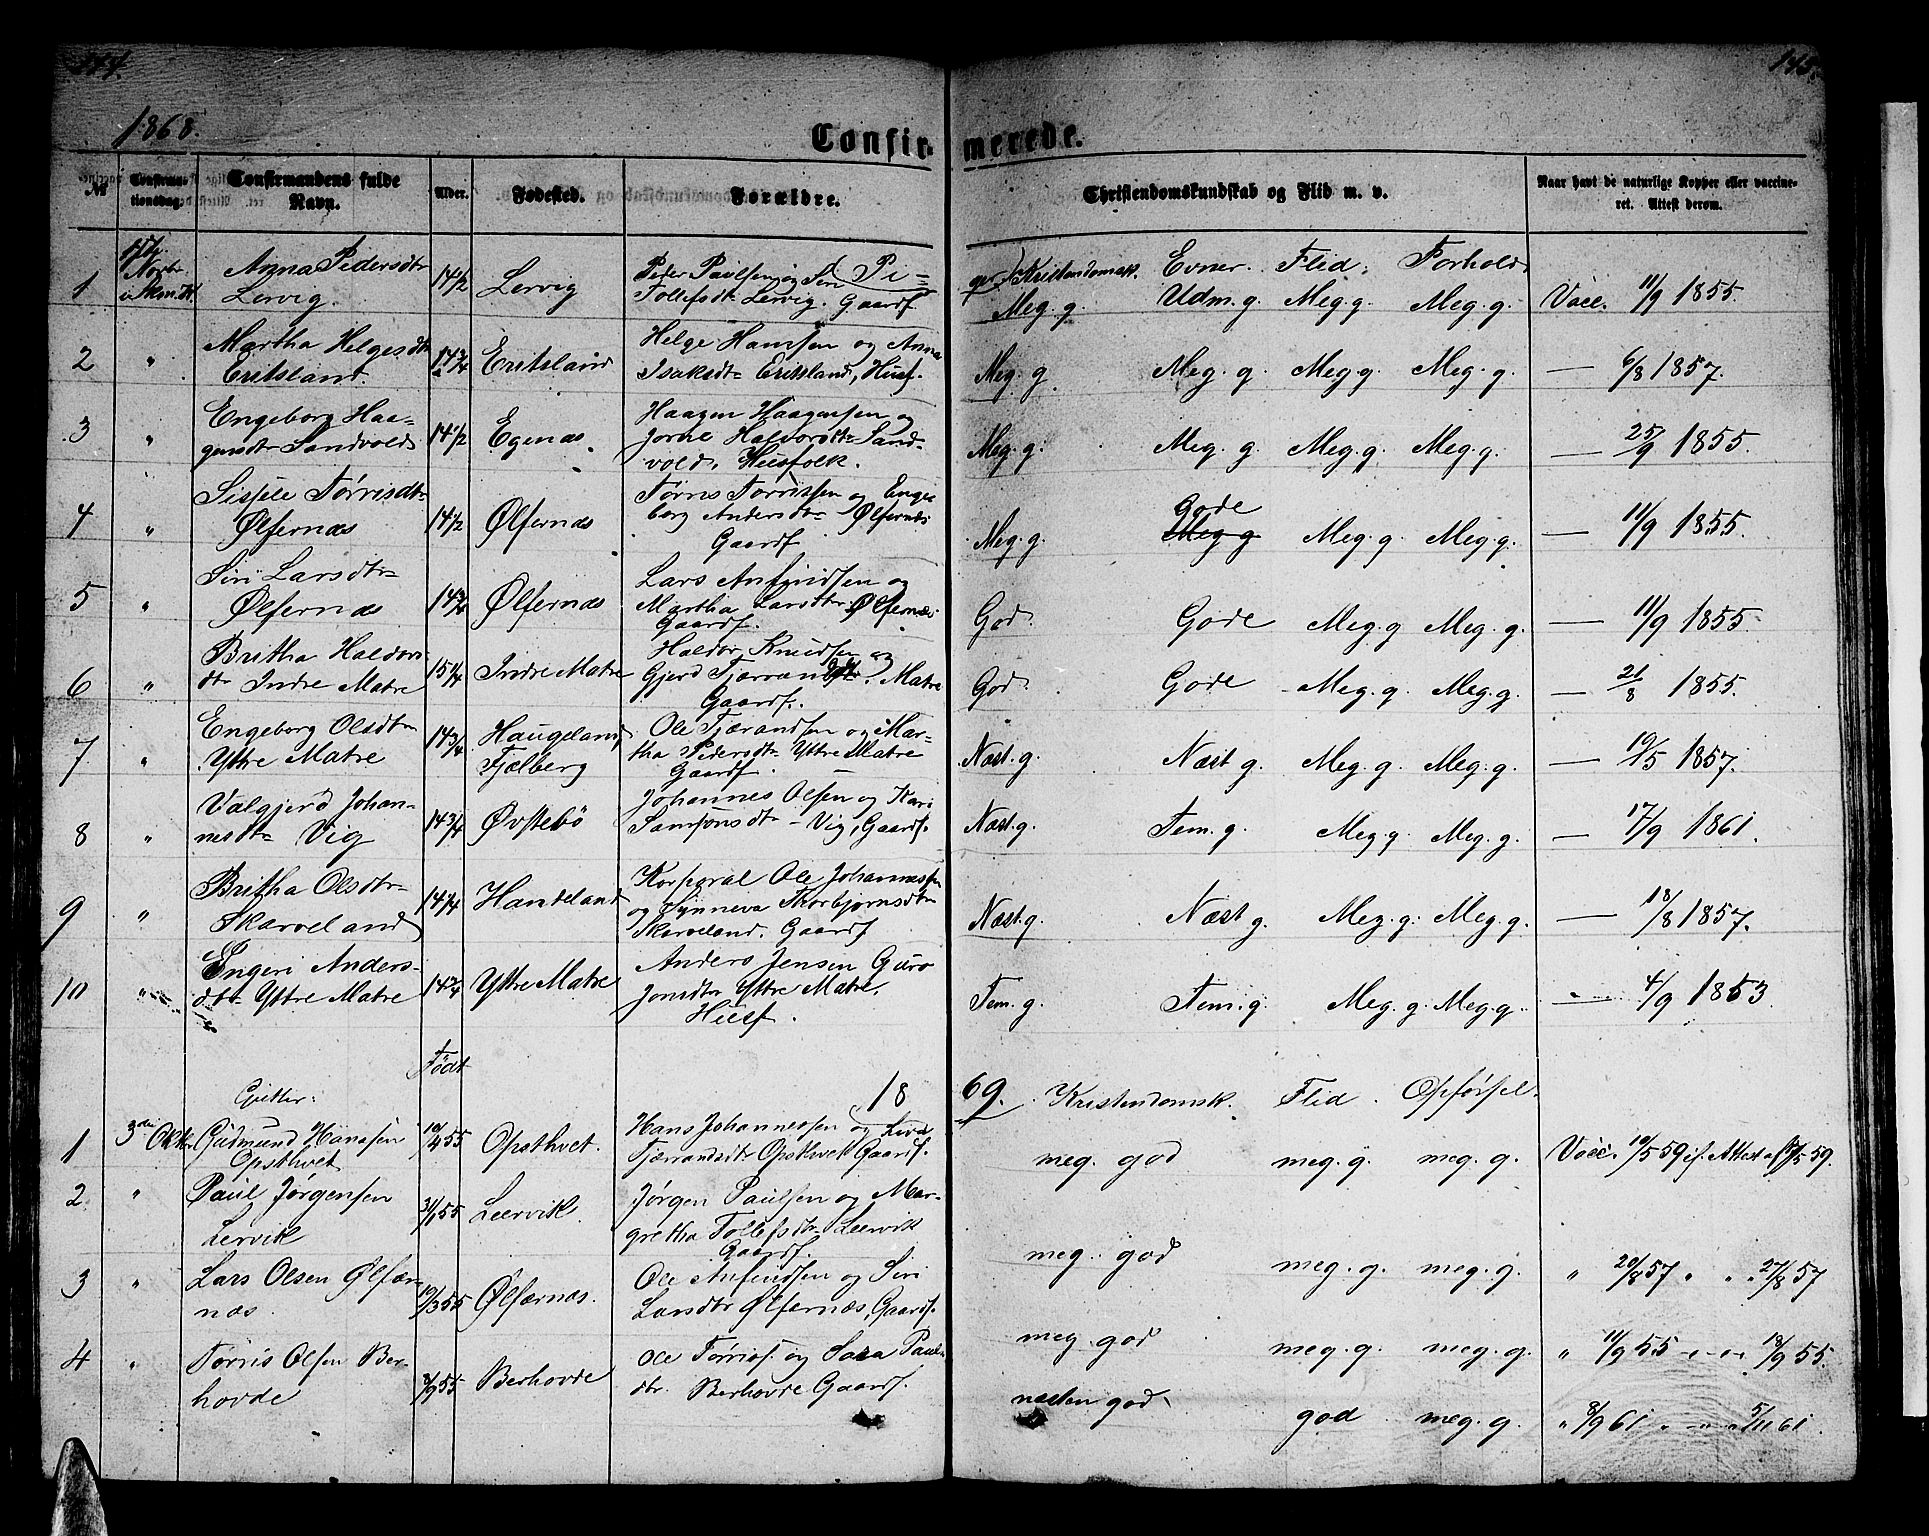 144.
145.
1868.
Confirmerede.
№
Confirmationsdag.
Confirmandens fulde Navn.
Alder.
Fødested.
Forældre.
Christendomskundskab og Flid m. v.
Naar havt de naturlige Kopper eller vaccineret. Attest derom.
Piger
Kristendomsk. Evner. Flid. Forhold.
1 Anna Pedersdtr Lervig. 14 1/2 Lervig Peder Paulsen og Siri Tollefsdtr Lervig. Gaardf. Meg. g. Udm. g. Meg g. Meg. g. Vacc. 11/9 1855.
2 " Martha Helgesdtr Eritsland. 14 3/4 Eritsland Helge Hansen og Anna Isaksdtr Eritsland, Husf. Meg. g. Meg. g. Meg g. Meg. g. — 6/8 1857.
3 " Engeborg Haagensdtr Sandvold 14 1/2 Egenæs. Haagen Haagensen og Jorne Halvorsdtr Sandvold, Husfolk. Meg. g. Meg. g. Meg. g. Meg. g. — 25/9 1855.
4 " Sissele Tørrisdtr Ølfernæs 14 1/2 Ølfernæs Tørris Tørrissen og Engeborg Andersdtr Ølfernæs Gaardf. Meg. g. Gode Meg g Meg. g. Meg. g. — 11/9 1855.
5 " Siri Larsdtr Ølfernæs 14 3/4 Ølfernæs Lars Anfindsen og Martha Larsdtr Ølfernæs Gaardf. God. Gode Meg. g Meg. g. — 11/9 1855.
6 " Britha Haldorsdtr Indre Matre 15 1/4 Indre Matre Haldor Knudsen og Gjerd Tjærandsdtr I. Matre Gaardf. God. Gode Meg. g. Meg. g. — 21/8 1855.
7. " Engeborg Olsdtr Yttre Matre 14 3/4 Haugeland, Fjelberg Ole Tjærandsen og Martha Pedersdtr Yttre Matre Gaardf. Næst. g. Næst g. Meg. g. Meg. g. — 19/5 1857.
8 " Valgjerd Johannesdtr Vig 14 3/4 Øvstebö Johannes Olsen og Kari Samsonsdtr Vig, Gaardf. Næst. g. Tem. g. Meg g Meg. g. — 17/9 1861.
9 " Britha Olsdtr Skarveland 14 1/4 Hanteland Korporal Ole Johannessen og Synneva Thorbjørnsdtr Skarveland. Gaardf Næst. g. Næst g. Meg. g. Meg. g. — 18/8 1857.
10 " Engeri Andersdtr Yttre Matre 14 3/4 Yttre Matre Anders Jensen Guro Jonsdtr Yttre Matre, Husf. Tem. g. Tem. g. Meg. g. Meg. g. — 4/9 1853.
Født
1869.
Gutter:
Kristendomsk. Flid. Opførsel.
1 3die Okt. Gudmund Hansen Opsthvet 10/4 55 Opsthvet. Hans Johannessen og Siva Tjærrandsdtr Opsthvet Gaardf. meg. god meg. g. meg. g. Vacc. 10/5 59 if. Attest af 17/5 59.
2. " Paul Jørgensen Lervik 31/1 55 Leervik. Jørgen Paulsen og Margretha Tollefsdtr Leervik Gaardf. meg. god meg. g. meg. g. " 20/8 57 " " 27/8 57
3 " Lars Olsen Ølfærnæs. 19/3 55 Ølfærnæs. Ole Anfindsen og Siri Larsdtr Ølfernæs, Gaardf. meg. god meg. g. meg. g. " 11/9 55 " " 18/9 55.
4 " Tørris Olsen Berhovde 9/9 55 Berhovde Ole Tørris. og Sara Paulsdtr. Berhovde Gaardf. næsten god god meg. g. " 8/9 61 " " 5/11 61